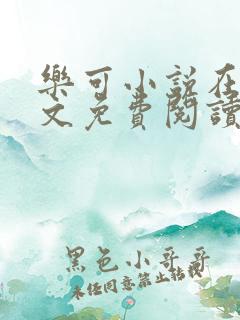 樂可小說在
文免費閱讀
黑色小哥哥
未任同意禁止轉載